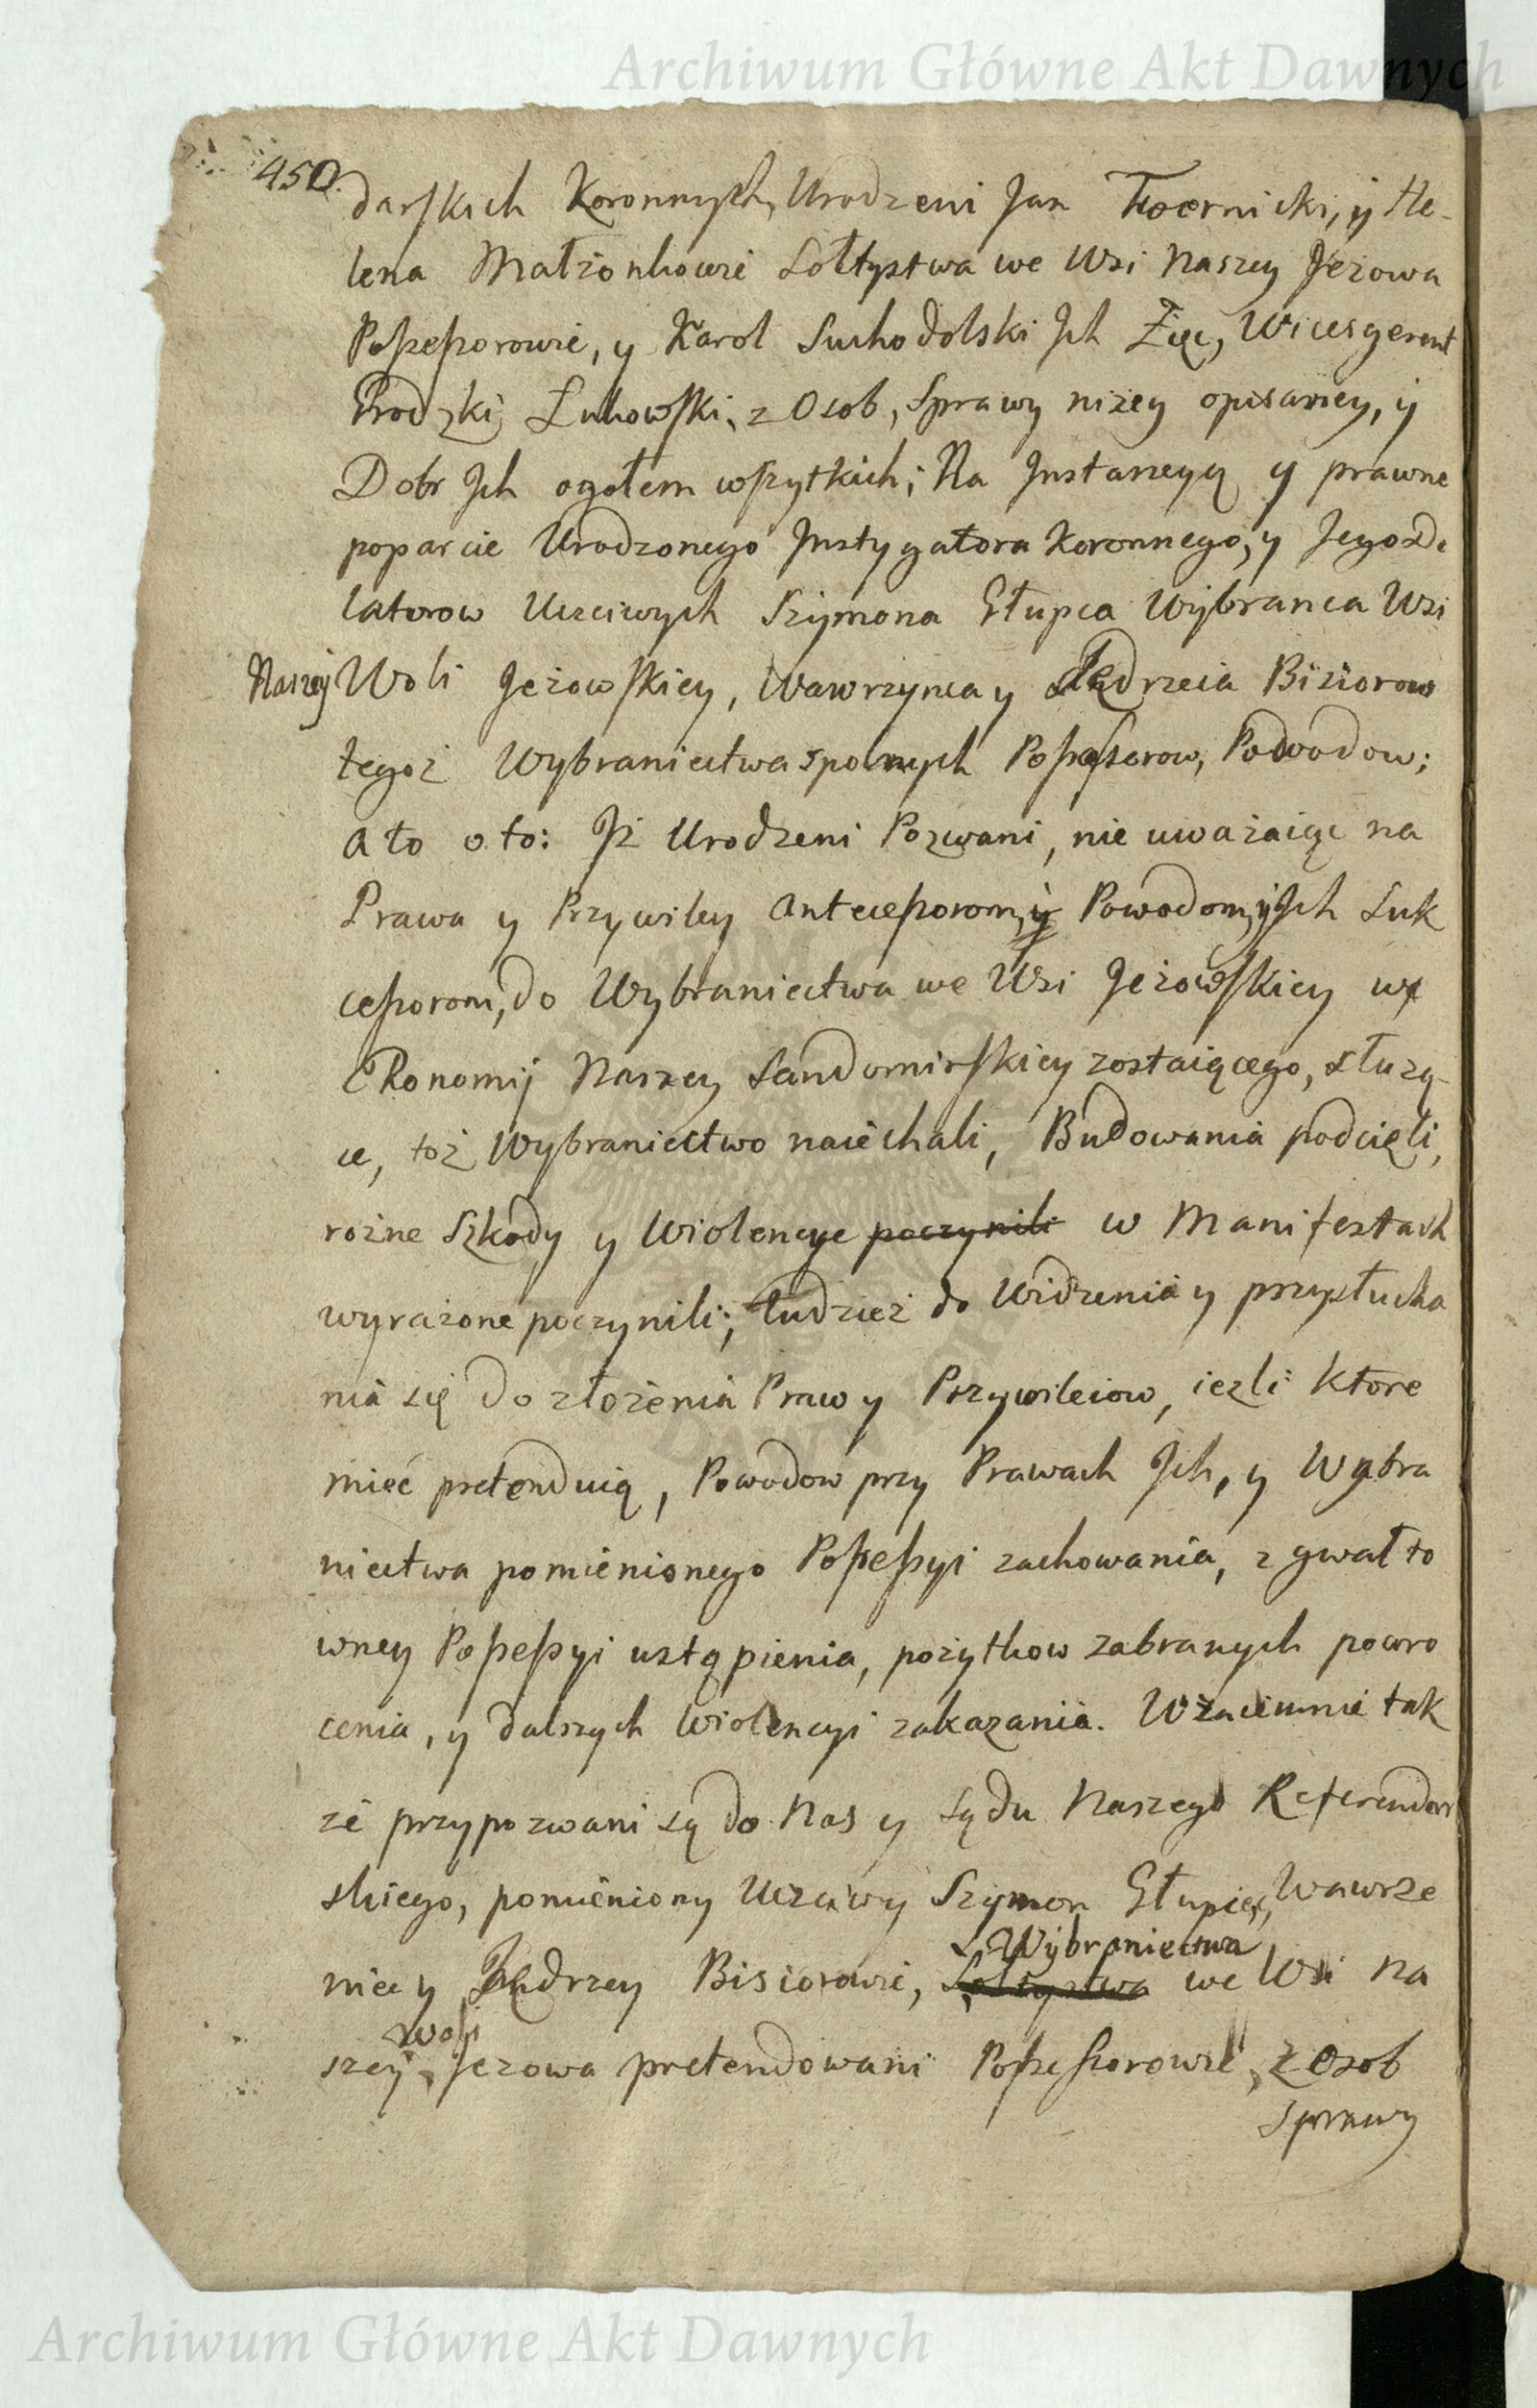 Archiwum Główne Akt Dawnych
450.
darskich Koronnych, Urodzeni Jan y He-
lena Małżonkowie Sołtystwa we Wsi Naszey Jeżowa
Possessorowie, y Karol Suchodolski Jch Zięc, Wicesgerent
Grodzki Łukowski, z Osob, Sprawy niżey opisaney, y
Dobr Jch ogołem wszytkich; Na Jnstancyą y prawne
poparcie Urodzonego Jnstygatora Koronnego, y Jego De
latorow Uczciwych Szymona Głupca Wybranca Wsi
Naszey Woli Jeżowskiey, Wawrzynca y Jędrzeia Bisiorow
tegoż Wybraniectwa spolnych Possessorow, Powodow;
a to o to: Jż Urodzeni Pozwani, nie uważaiąc na
Prawa y Przywiley Antecessorom, y Powodom, y Jch Suk
cessorom, do Wybraniectwa we Wsi Jeżowskiey w
Ekonomij Naszey Sandomirskiey zostaiącego, służą-
ce, toż Wybraniectwo naiechali, Budowania podcięli,
rożne Szkody y Wiolencye poczynili w Manifestach
wyrażone poczynili; tudzież do Widzenia y przysłucha
nia się do złożenia Praw y Przywileiow, iezli ktore
mieć pretenduią, Powodow przy Prawach Jch, y Wybra
niectwa pomienionego Possessyi zachowania, z gwałto
wney Possessyi ustąpienia, pożytkow zabranych powro
cenia, y dalszych Wiolencyi zakazania. Wzaiemnie tak
że przypozwani są do Nas y Sądu Naszego Referendar
skiego, pomieniony Uczciwy Szymon Głupiec, Wawrze
niec y Jędrzey Bisiorowie, Sołtystwa Wybraniectwa we Wsi Na
szey Woli Jezowa pretendowani Possessorowie, z Osob
Sprawy
Archiwum Główne Akt Dawnych